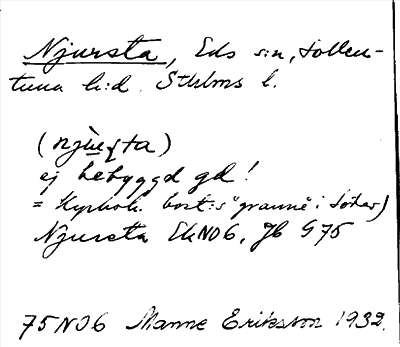 Njursta, Eds sn, Sollen-
tuna h:d. Sthlms l.
(njùrʂta)
ej bebyggd gd!
= Kyrkoh. bost:s "granne i söder)
Njursta EkN06, Jb G 75
75N06 Manne Eriksson 1932.